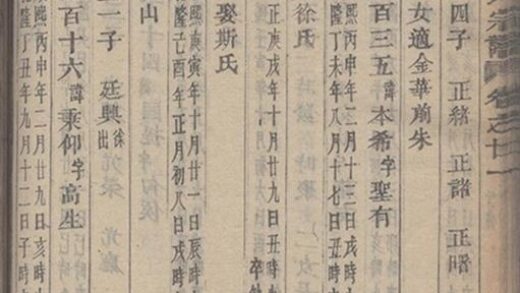 宗譜 卷之廿一
四子 正緒 正諸 正昭
女適金華前朱
百三五 諱本希 字聖有
年二月十三日亥時
隆丁未年八月十七日丑時
徐氏
正庚戌年十月廿九日戌時
卒
娶斯氏
熙庚寅年十月廿一日辰時
隆己酉年正月初八日戌時
山
二子 廷興 徐出
百十六 諱乘仰 字高生
熙丙申年二月廿九日亥時
隆丁丑年九月十二日子時